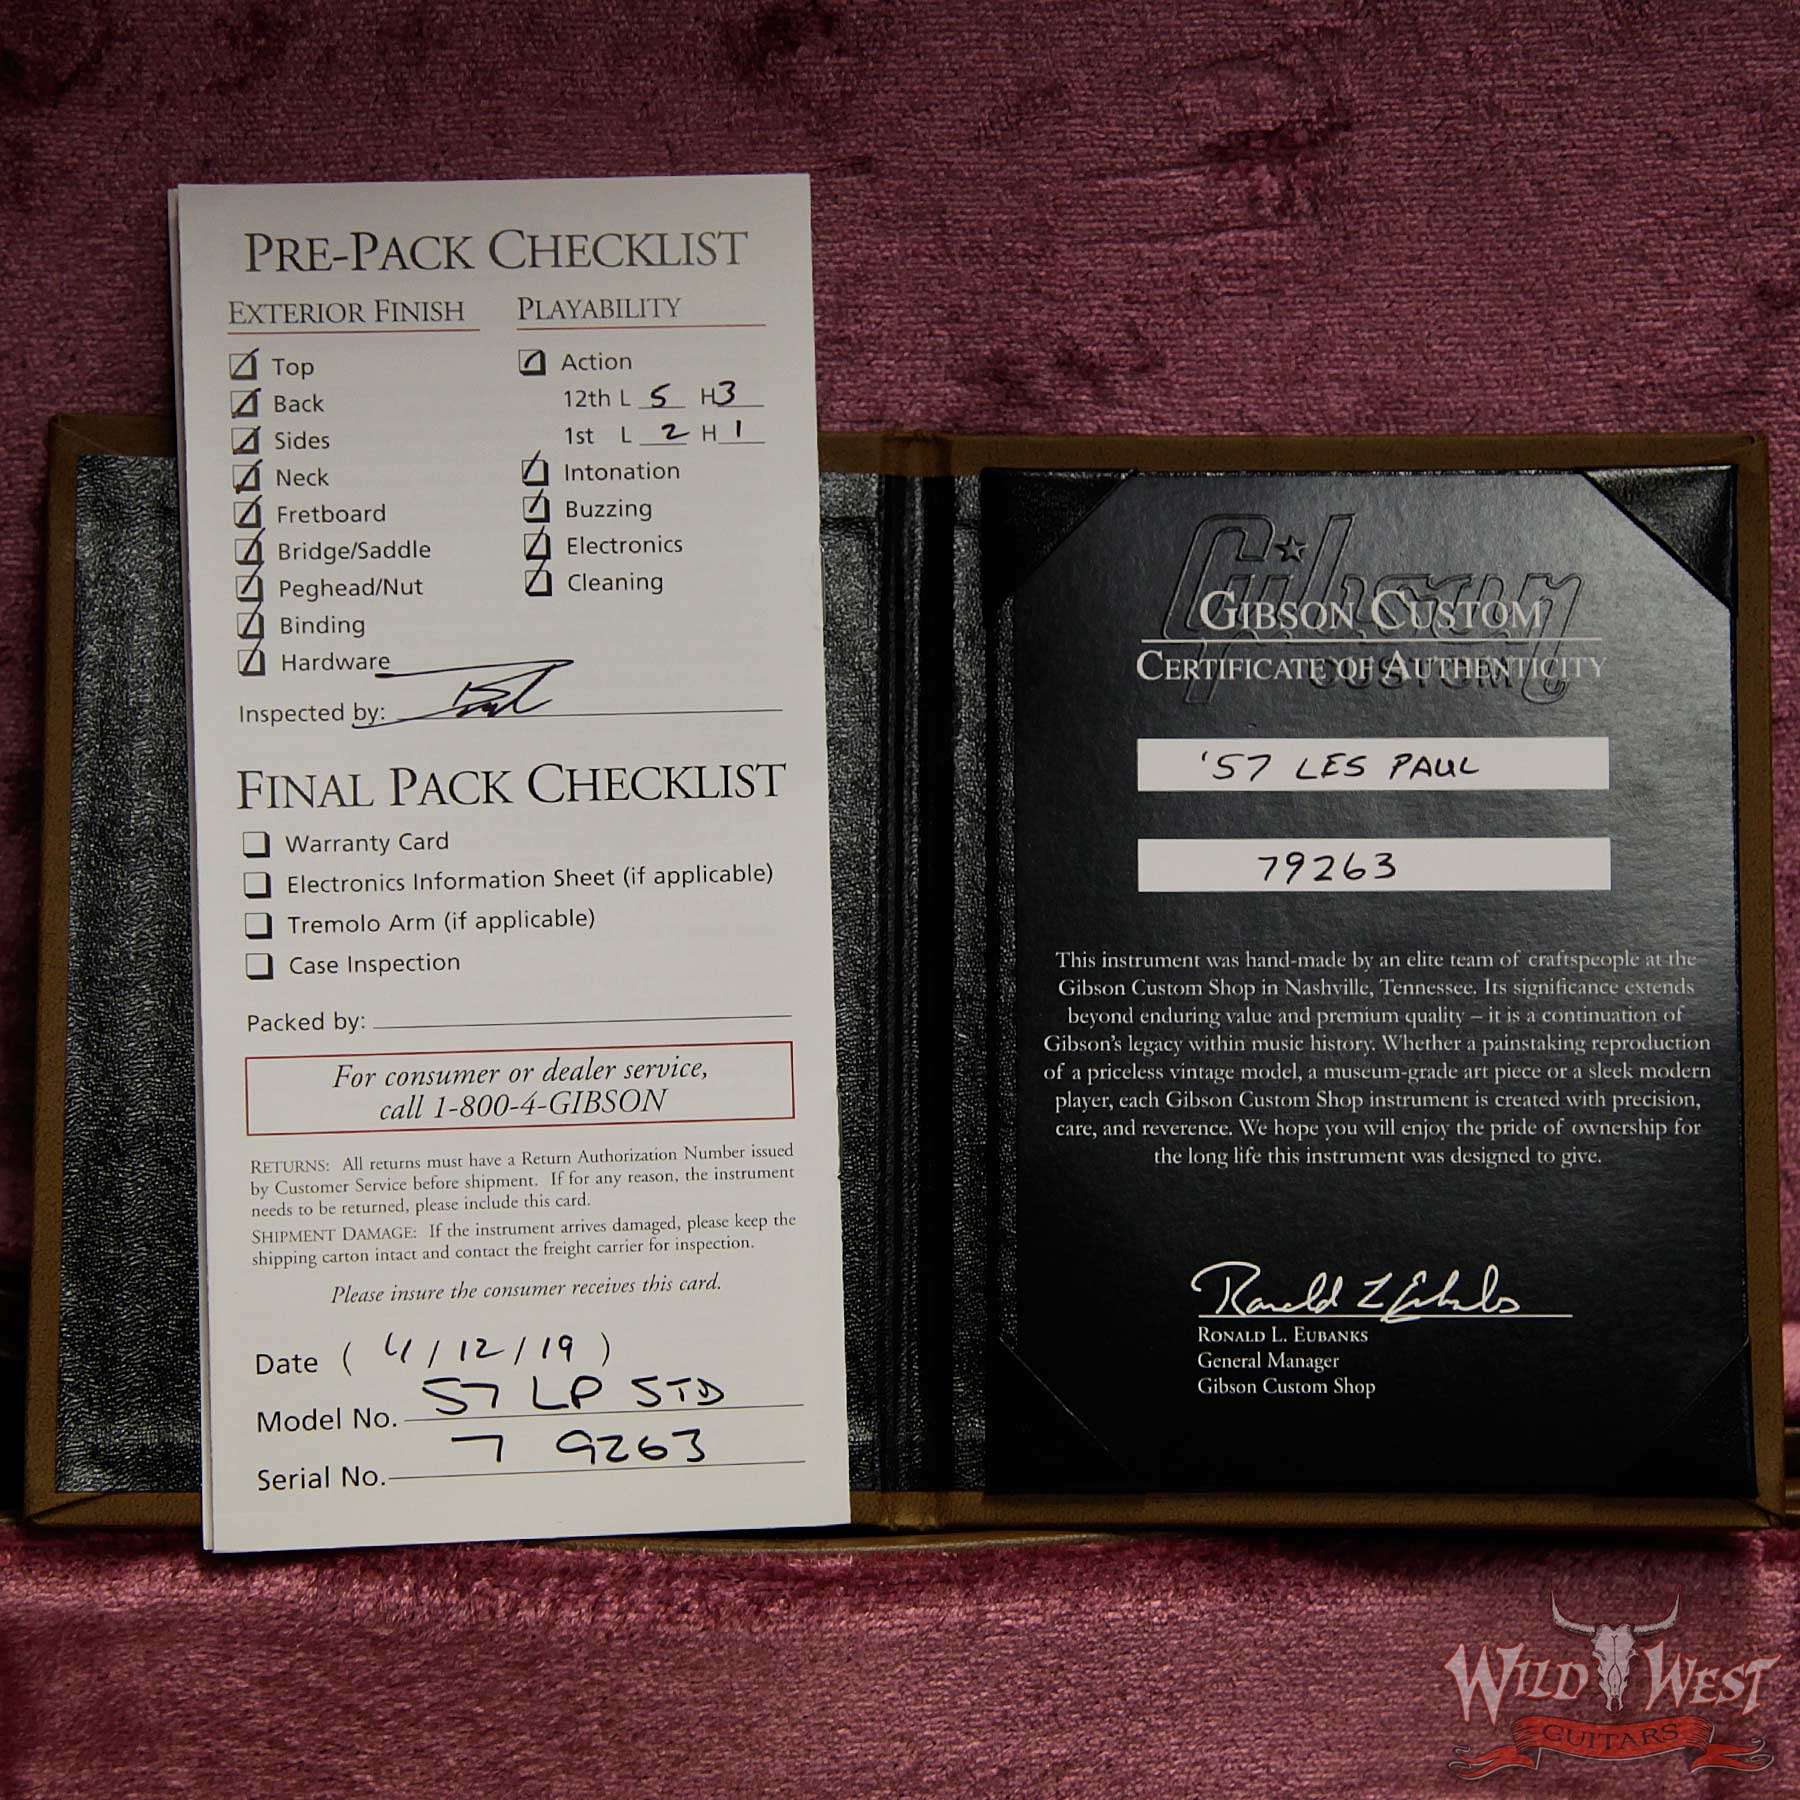 PRE-PACK CHECKLIST
EXTERIOR FINISH
Top
Back
Sides
Neck
Fretboard
Bridge/Saddle
Peghead/Nut
Binding
Hardware
PLAYABILITY
Action
12th L 5 H 3
1st L 2 H 1
Intonation
Buzzing
Electronics
Cleaning
Inspected by:
FINAL PACK CHECKLIST
Warranty Card
Electronics Information Sheet (if applicable)
Tremolo Arm (if applicable)
Case Inspection
Packed by:
For consumer or dealer service,
call 1-800-4-GIBSON
RETURNS: All returns must have a Return Authorization Number issued
by Customer Service before shipment. If for any reason, the instrument
needs to be returned, please include this card.
SHIPMENT DAMAGE: If the instrument arrives damaged, please keep the
shipping carton intact and contact the freight carrier for inspection.
Please insure the consumer receives this card.
Date ( 4/12/19 )
Model No. 57 LP STD
Serial No. 7 9263
Gibson
CUSTOM
GIBSON CUSTOM
CERTIFICATE OF AUTHENTICITY
'57 LES PAUL
79263
This instrument was hand-made by an elite team of craftspeople at the
Gibson Custom Shop in Nashville, Tennessee. Its significance extends
beyond enduring value and premium quality – it is a continuation of
Gibson's legacy within music history. Whether a painstaking reproduction
of a priceless vintage model, a museum-grade art piece or a sleek modern
player, each Gibson Custom Shop instrument is created with precision,
care, and reverence. We hope you will enjoy the pride of ownership for
the long life this instrument was designed to give.
Ronald L Eubanks
RONALD L. EUBANKS
General Manager
Gibson Custom Shop
WILD WEST
GUITARS